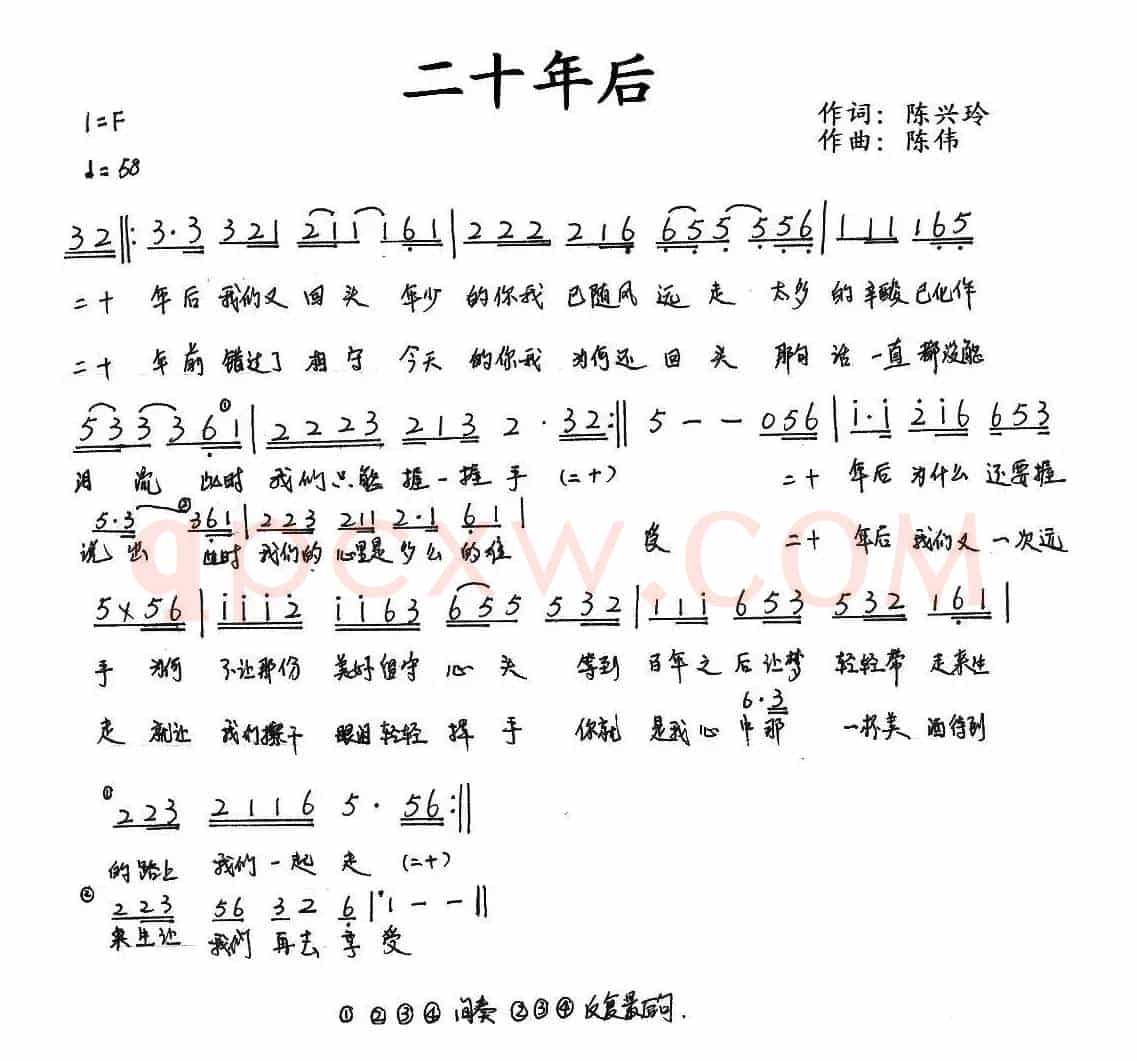 二十年后
作词：陈兴玲
作曲：陈伟
1=F
♩=58
32‖: 3·3 321 2111 61|2222 216 6555 5556|1111 165
二十 年后我们又回头 年少的你我 已随风远走 太多的辛酸已化作
二十 年前错过了相守 今天的你我 为何还回头 那句话一直都没能
53336①1|2223 213 2·32:‖ 5 - - 056|i·i 2i6 653
泪流 此时 我们只能握一握手(二十) 二十 年后为什么还要握
5·3 ②361|223 211 2·1 61|
说出 此时 我们的心里是多么的难受 二十 年后我们又一次远
5×56|iii2 ii63 655 532|11i 653 532 161|
手 为何 不让那份美好留守心头 等到百年之后让梦轻轻带走来生
6·3
走 就让我们擦干眼泪轻轻挥手 你就是我心中那一杯美酒待到
① 223 2116 5· 56:‖
的路上 我们一起走(二十)
② 223 56 32 6|1 - -‖
来生让 我们再去享受
①②③④间奏②③④反复最后句.
qpcxw.COM